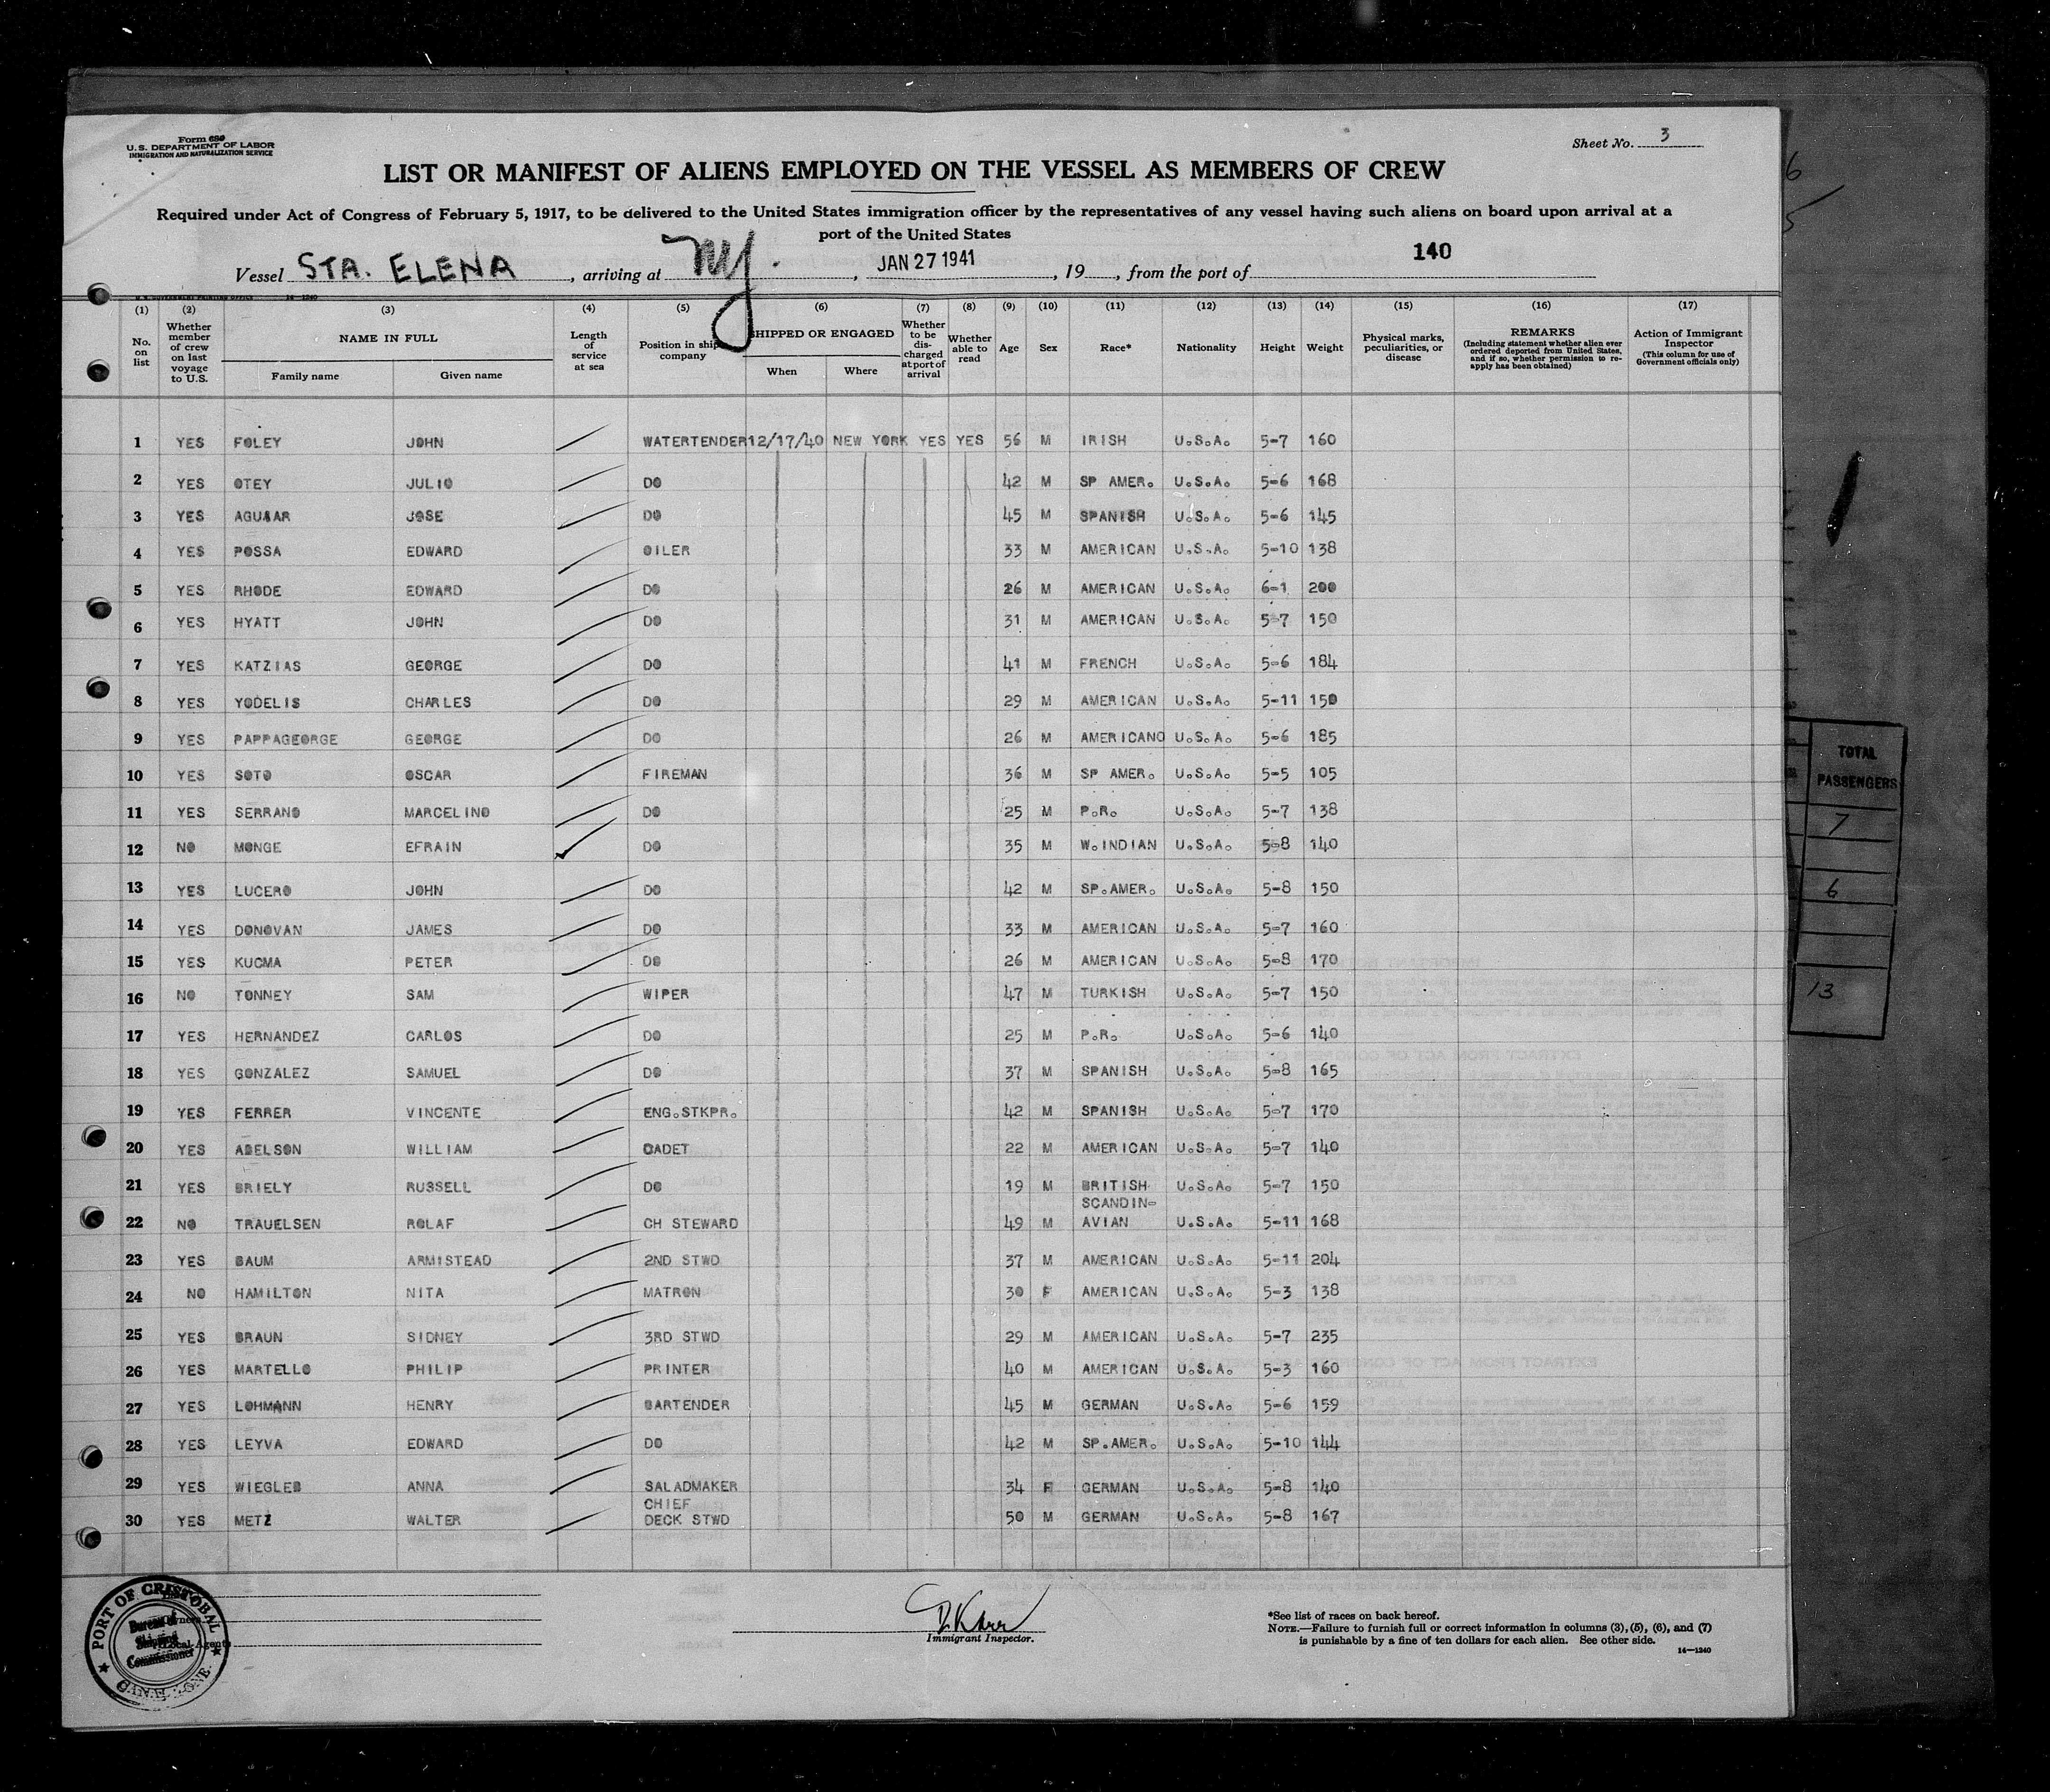 Form 680
U.S. DEPARTMENT OF LABOR
IMMIGRATION AND NATURALIZATION SERVICE
Sheet No. 3
LIST OR MANIFEST OF ALIENS EMPLOYED ON THE VESSEL AS MEMBERS OF CREW
Required under Act of Congress of February 5, 1917, to be delivered to the United States immigration officer by the representatives of any vessel having such aliens on board upon arrival at a
port of the United States
140
Vessel STA. ELENA, arriving at NY., JAN 27 1941, 19, from the port of
(1) (2) (3) (4) (5) (6) (7) (8) (9) (10) (11) (12) (13) (14) (15) (16) (17)
No. on list Whether member of crew on last voyage to U.S. NAME IN FULL Family name Given name Length of service at sea Position in ship's company SHIPPED OR ENGAGED When Where Whether to be discharged at port of arrival Whether able to read Age Sex Race* Nationality Height Weight Physical marks, peculiarities, or disease REMARKS (Including statement whether alien ever ordered deported from United States, and if so, whether permission to reapply has been obtained) Action of Immigrant Inspector (This column for use of Government officials only)
1 YES FOLEY JOHN WATERTENDER 12/17/40 NEW YORK YES YES 56 M IRISH U.S.A. 5-7 160
2 YES OTEY JULIO DO 42 M SP AMER. U.S.A. 5-6 168
3 YES AGUIAR JOSE DO 45 M SPANISH U.S.A. 5-6 145
4 YES POSSA EDWARD OILER 33 M AMERICAN U.S.A. 5-10 138
5 YES RHODE EDWARD DO 26 M AMERICAN U.S.A. 6-1 200
6 YES HYATT JOHN DO 31 M AMERICAN U.S.A. 5-7 150
7 YES KATZIAS GEORGE DO 41 M FRENCH U.S.A. 5-6 184
8 YES YODELIS CHARLES DO 29 M AMERICAN U.S.A. 5-11 150
9 YES PAPPAGEORGE GEORGE DO 26 M AMERICANO U.S.A. 5-6 185
10 YES SOTO OSCAR FIREMAN 36 M SP AMER. U.S.A. 5-5 105
11 YES SERRANO MARCELINO DO 25 M P.R. U.S.A. 5-7 138
12 NO MONGE EFRAIN DO 35 M W.INDIAN U.S.A. 5-8 140
13 YES LUCERO JOHN DO 42 M SP.AMER. U.S.A. 5-8 150
14 YES DONOVAN JAMES DO 33 M AMERICAN U.S.A. 5-7 160
15 YES KUCMA PETER DO 26 M AMERICAN U.S.A. 5-8 170
16 NO TONNEY SAM WIPER 47 M TURKISH U.S.A. 5-7 150
17 YES HERNANDEZ CARLOS DO 25 M P.R. U.S.A. 5-6 140
18 YES GONZALEZ SAMUEL DO 37 M SPANISH U.S.A. 5-8 165
19 YES FERRER VINCENTE ENG.STKPR. 42 M SPANISH U.S.A. 5-7 170
20 YES ADELSON WILLIAM CADET 22 M AMERICAN U.S.A. 5-7 140
21 YES BRIELY RUSSELL DO 19 M BRITISH U.S.A. 5-7 150
22 NO TRAUELSEN ROLAF CH STEWARD 49 M SCANDIN-AVIAN U.S.A. 5-11 168
23 YES BAUM ARMISTEAD 2ND STWD 37 M AMERICAN U.S.A. 5-11 204
24 NO HAMILTON NITA MATRON 30 F AMERICAN U.S.A. 5-3 138
25 YES BRAUN SIDNEY 3RD STWD 29 M AMERICAN U.S.A. 5-7 235
26 YES MARTELLO PHILIP PRINTER 40 M AMERICAN U.S.A. 5-3 160
27 YES LOHMANN HENRY BARTENDER 45 M GERMAN U.S.A. 5-6 159
28 YES LEYVA EDWARD DO 42 M SP.AMER. U.S.A. 5-10 144
29 YES WIEGLEB ANNA SALADMAKER 34 F GERMAN U.S.A. 5-8 140
30 YES METZ WALTER CHIEF DECK STWD 50 M GERMAN U.S.A. 5-8 167
PORT OF CRISTOBAL
Bureau of
Shipping
Commissioner
CANAL ZONE
Immigrant Inspector.
*See list of races on back hereof.
NOTE.—Failure to furnish full or correct information in columns (3), (5), (6), and (7)
is punishable by a fine of ten dollars for each alien. See other side.
14—1240
TOTAL
PASSENGERS
7
6
13